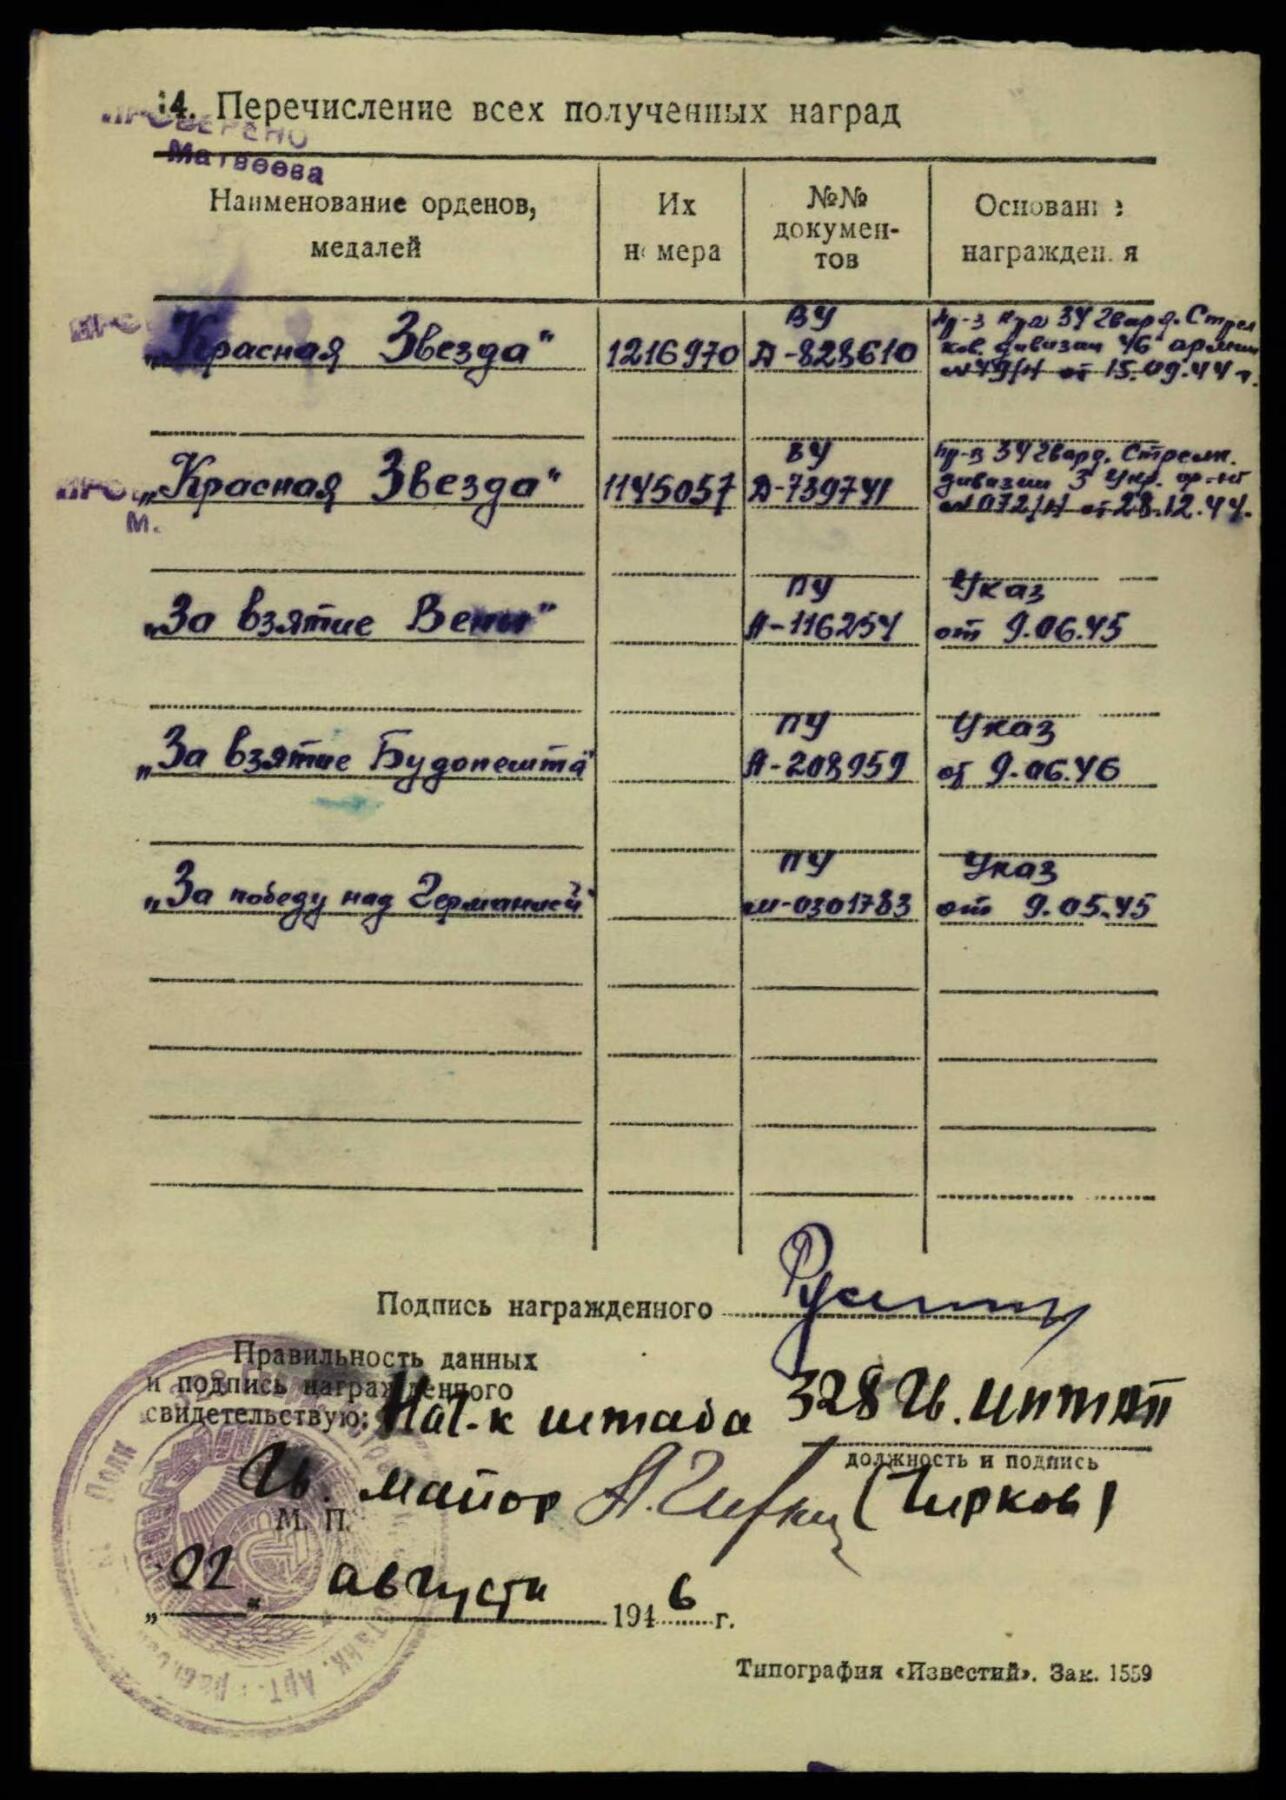 14. Перечисление всех полученных наград
ПРОВЕРЕНО
Матвеева
Наименование орденов, медалей
Их номера
№№ документов
Основание награждения
„Красная Звезда“ 1216970 ВУ Д-828610
Пр-з 34 Гвард. Стрелков. дивизии 46 армии
№49/н от 15.09.44 г.
„Красная Звезда“ 1145057 ВУ Д-739741
Пр-з 34 Гвард. Стрелк.
дивизии 3 Укр. фр-нт
№072/н от 28.12.44.
М.
„За взятие Вены“ ПУ А-116254 Указ от 9.06.45
„За взятие Будопешта“ ПУ А-208959 Указ от 9.06.46
„За победу над Германией“ ПУ М-0301783 Указ от 9.05.45
Подпись награжденного
Правильность данных
и подпись награжденного
свидетельствую: Нач-к штаба 328 Гв. ИПТАП
должность и подпись
Гв. майор А. Чирков (Чирков)
М. П.
„22“ августа 1946 г.
Типография «Известий». Зак. 1559